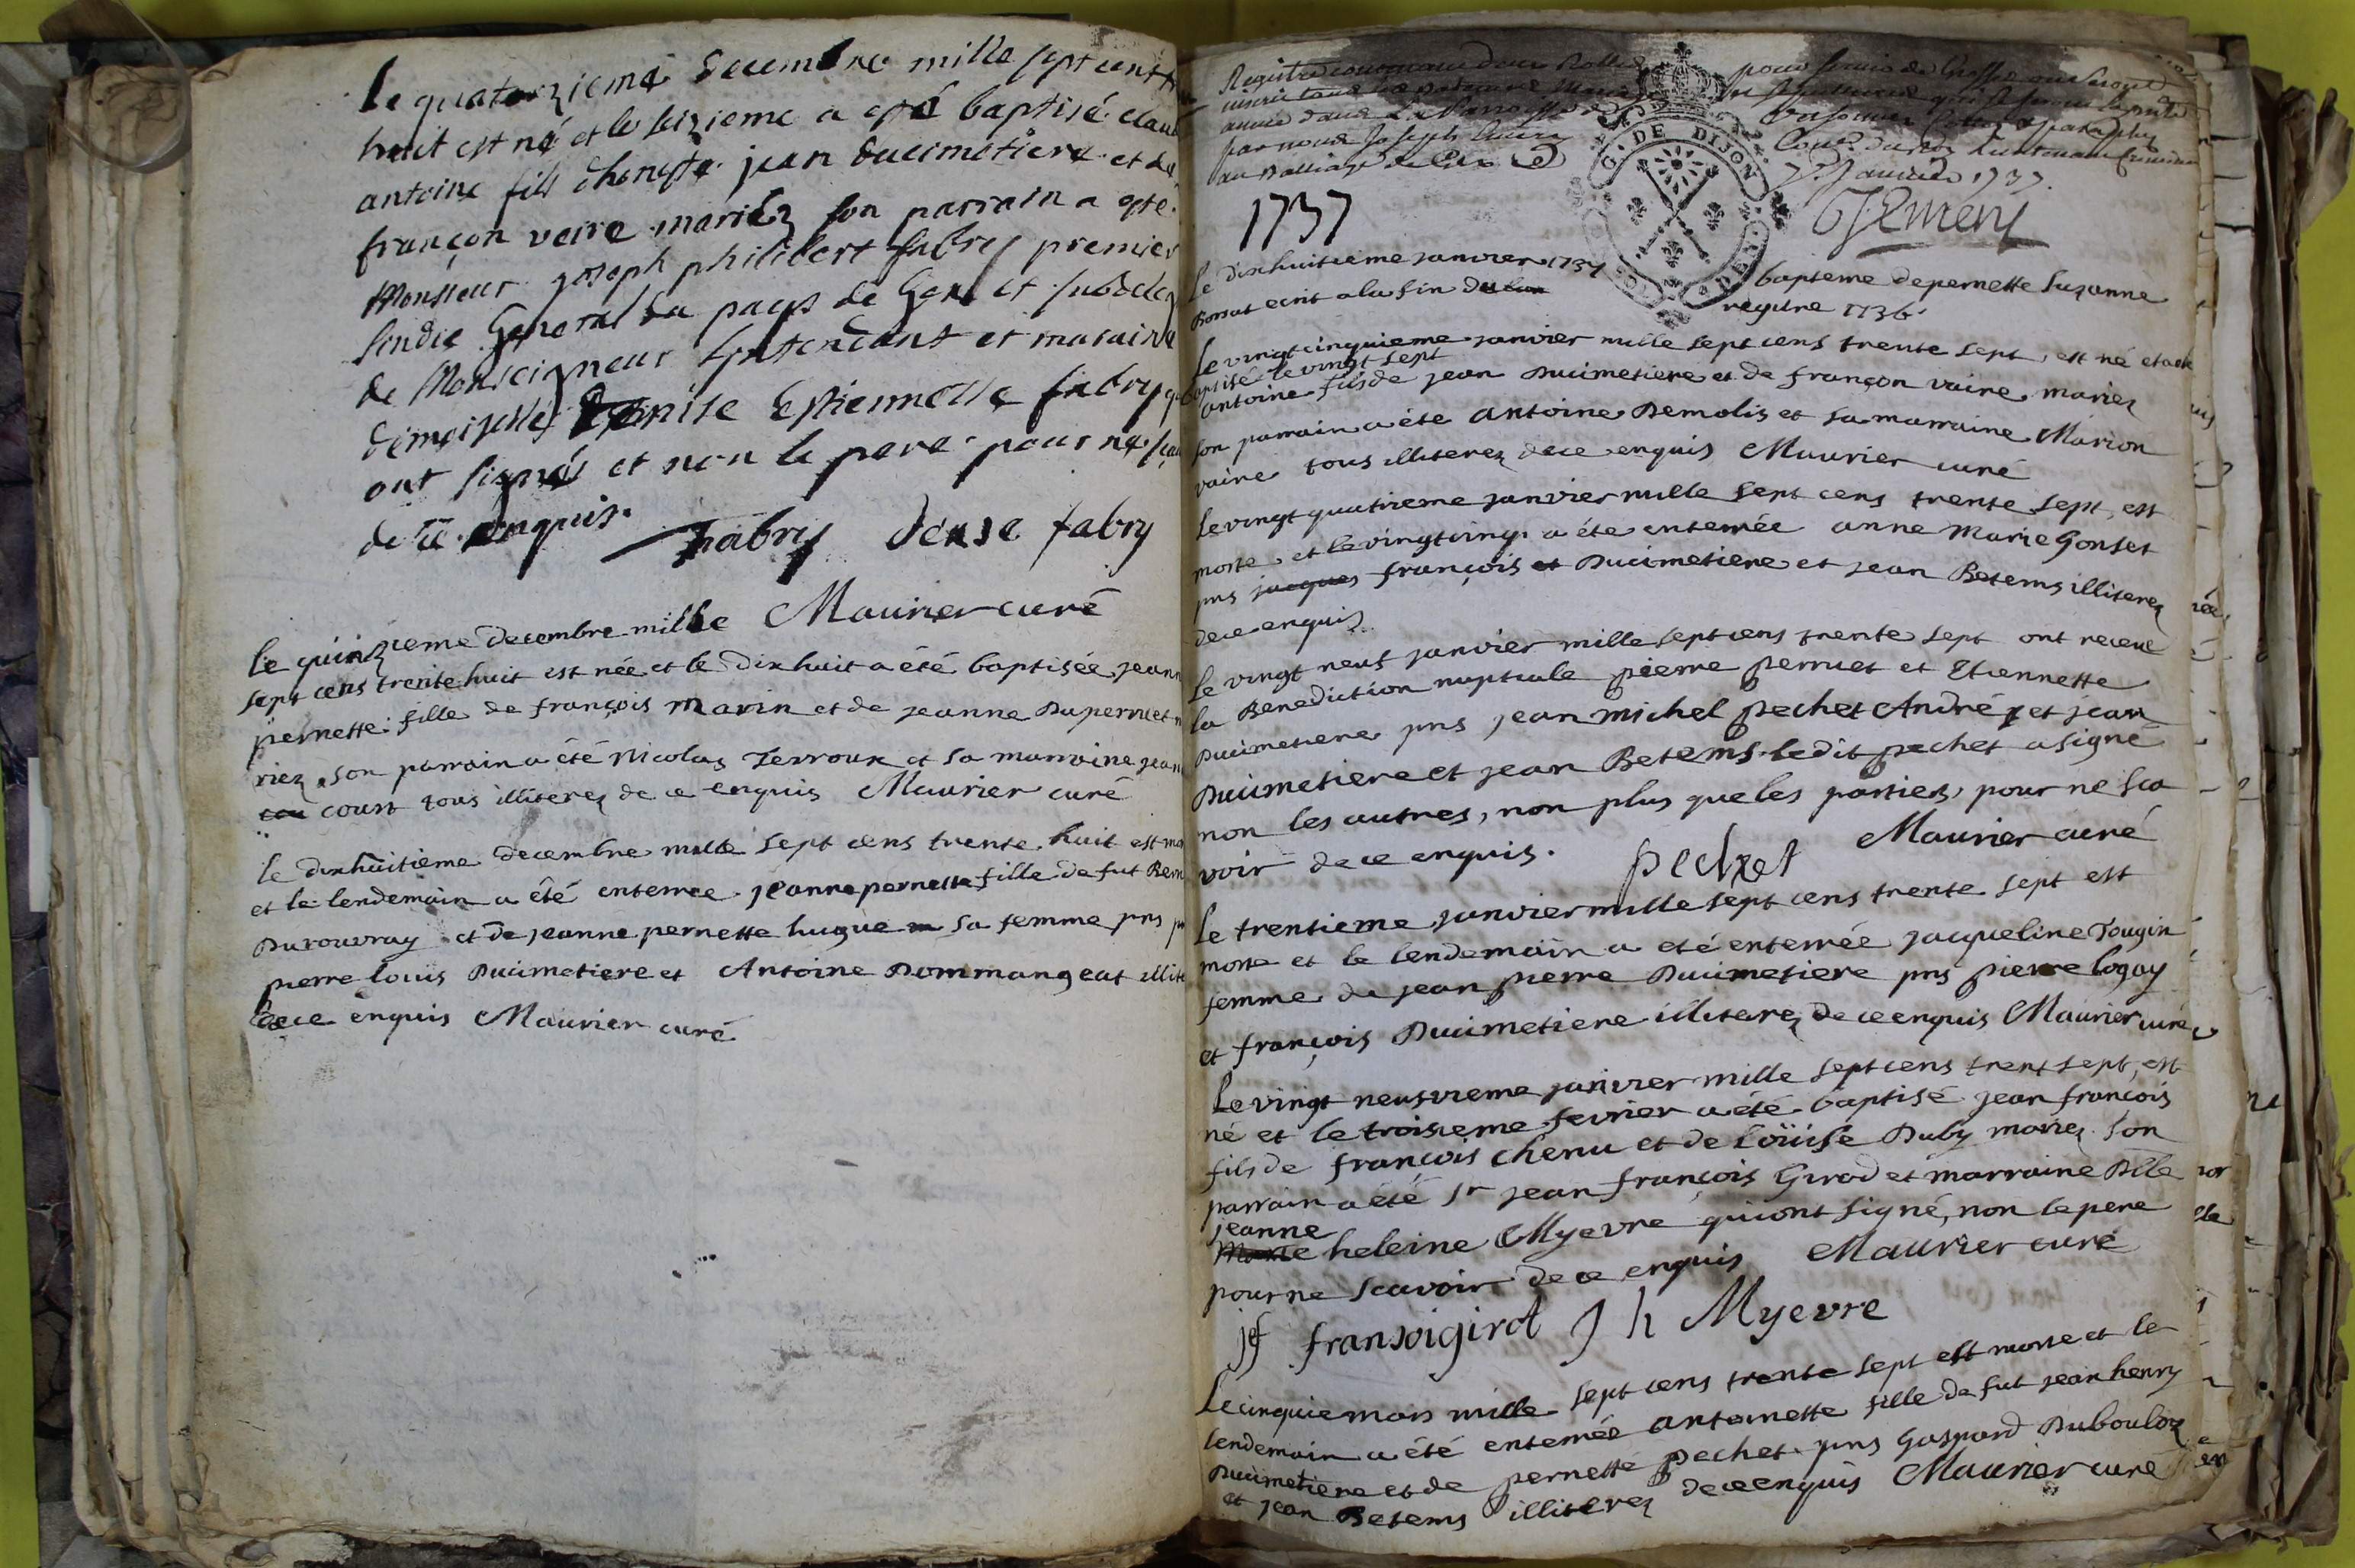 le quatorzieme decembre mille sept cent
huit est né et le seizieme a esté baptisé claud
antoine fils d'honeste jean ducimetiere et de
françon veire mariéz son parrain a esté
Monsieur joseph philibert fabry premier
sindic General du pays de Gex et subdeleg
de Monseigneur Lintendant et maraine
demoiselle denise estiennette fabry qu
ont signés et non le pere pour ne sçau
de ce enquis.
fabry denise fabry
Maurier curé
le quinzieme decembre mille
sept cens trente huit est née et le dixhuit a été baptisée jeann
pernette fille de françois marin et de jeanne Dupernet m
riez, son parrain a été Nicolas Terroux et sa marraine jean
court tous illiterez de ce enquis Maurier curé
le dixhuitieme decembre mille sept cens trente huit est mo
et le lendemain a été enterree jeanne pernette fille de fut Bern
Durouvray et de jeanne pernette hugue sa femme pns
pierre louis Ducimetiere et Antoine Dommangeat illite
de ce enquis Maurier curé
Registre
par nous Joseph
au Balliage de Gex
Janvier 1737.
G. DE DIJON
1737
le dixhuitieme janvier 1737 bapteme de pernette Suzanne
Borsat ecrit a la fin du regitre 1736.
Le vingtcinquieme janvier mille sept cens trente sept, est né et a ete
baptisé le vingt sept
antoine fils de jean Ducimetiere et de françon vaire mariez
son parrain a été antoine Demolis et sa marraine Marion
vaire tous illiterez de ce enquis Maurier curé
Le vingt quatrieme janvier mille sept cens trente sept, est
morte et le vingtcinq a été enterrée anne Marie Gonset
pns jacques françois et Ducimetiere et jean Betems illiterez
de ce enquis
Le vingt neuf janvier mille sept cens trente sept ont receue
la Benediction nuptiale pierre pernet et Etiennette
Ducimetiere pns jean michel pechet André et jean
Ducimetiere et jean Betems ledit pechet a signé
non les autres, non plus que les parties pour ne sca
voir de ce enquis. pechet Maurier curé
Le trentieme janvier mille sept cens trente sept est
morte et le lendemain a eté enterrée jacqueline Tougin
femme de jean pierre Ducimetiere pns pierre logoy
et françois Ducimetiere illiterez de ce enquis Maurier curé
Le vingt neufvieme janvier mille sept cens trent sept, est
né et le troisieme fevrier a été baptisé jean françois
fils de françois chenu et de Loüise Duby mariez son
parrain a été Sr jean françois Girod et marraine Dlle
jeanne
heleine Myevre qui ont signé, non le pere
pour ne scavoir de ce enquis Maurier curé
jf fransoigirod J h Myevre
Le cinquie mars mille sept cens trente sept est morte et le
lendemain a été enterrée antoinette fille de fut jean henry
Ducimetiere et de pernette pechet pns Gaspard Dubouloz
et jean Betems illiterez de ce enquis Maurier curé